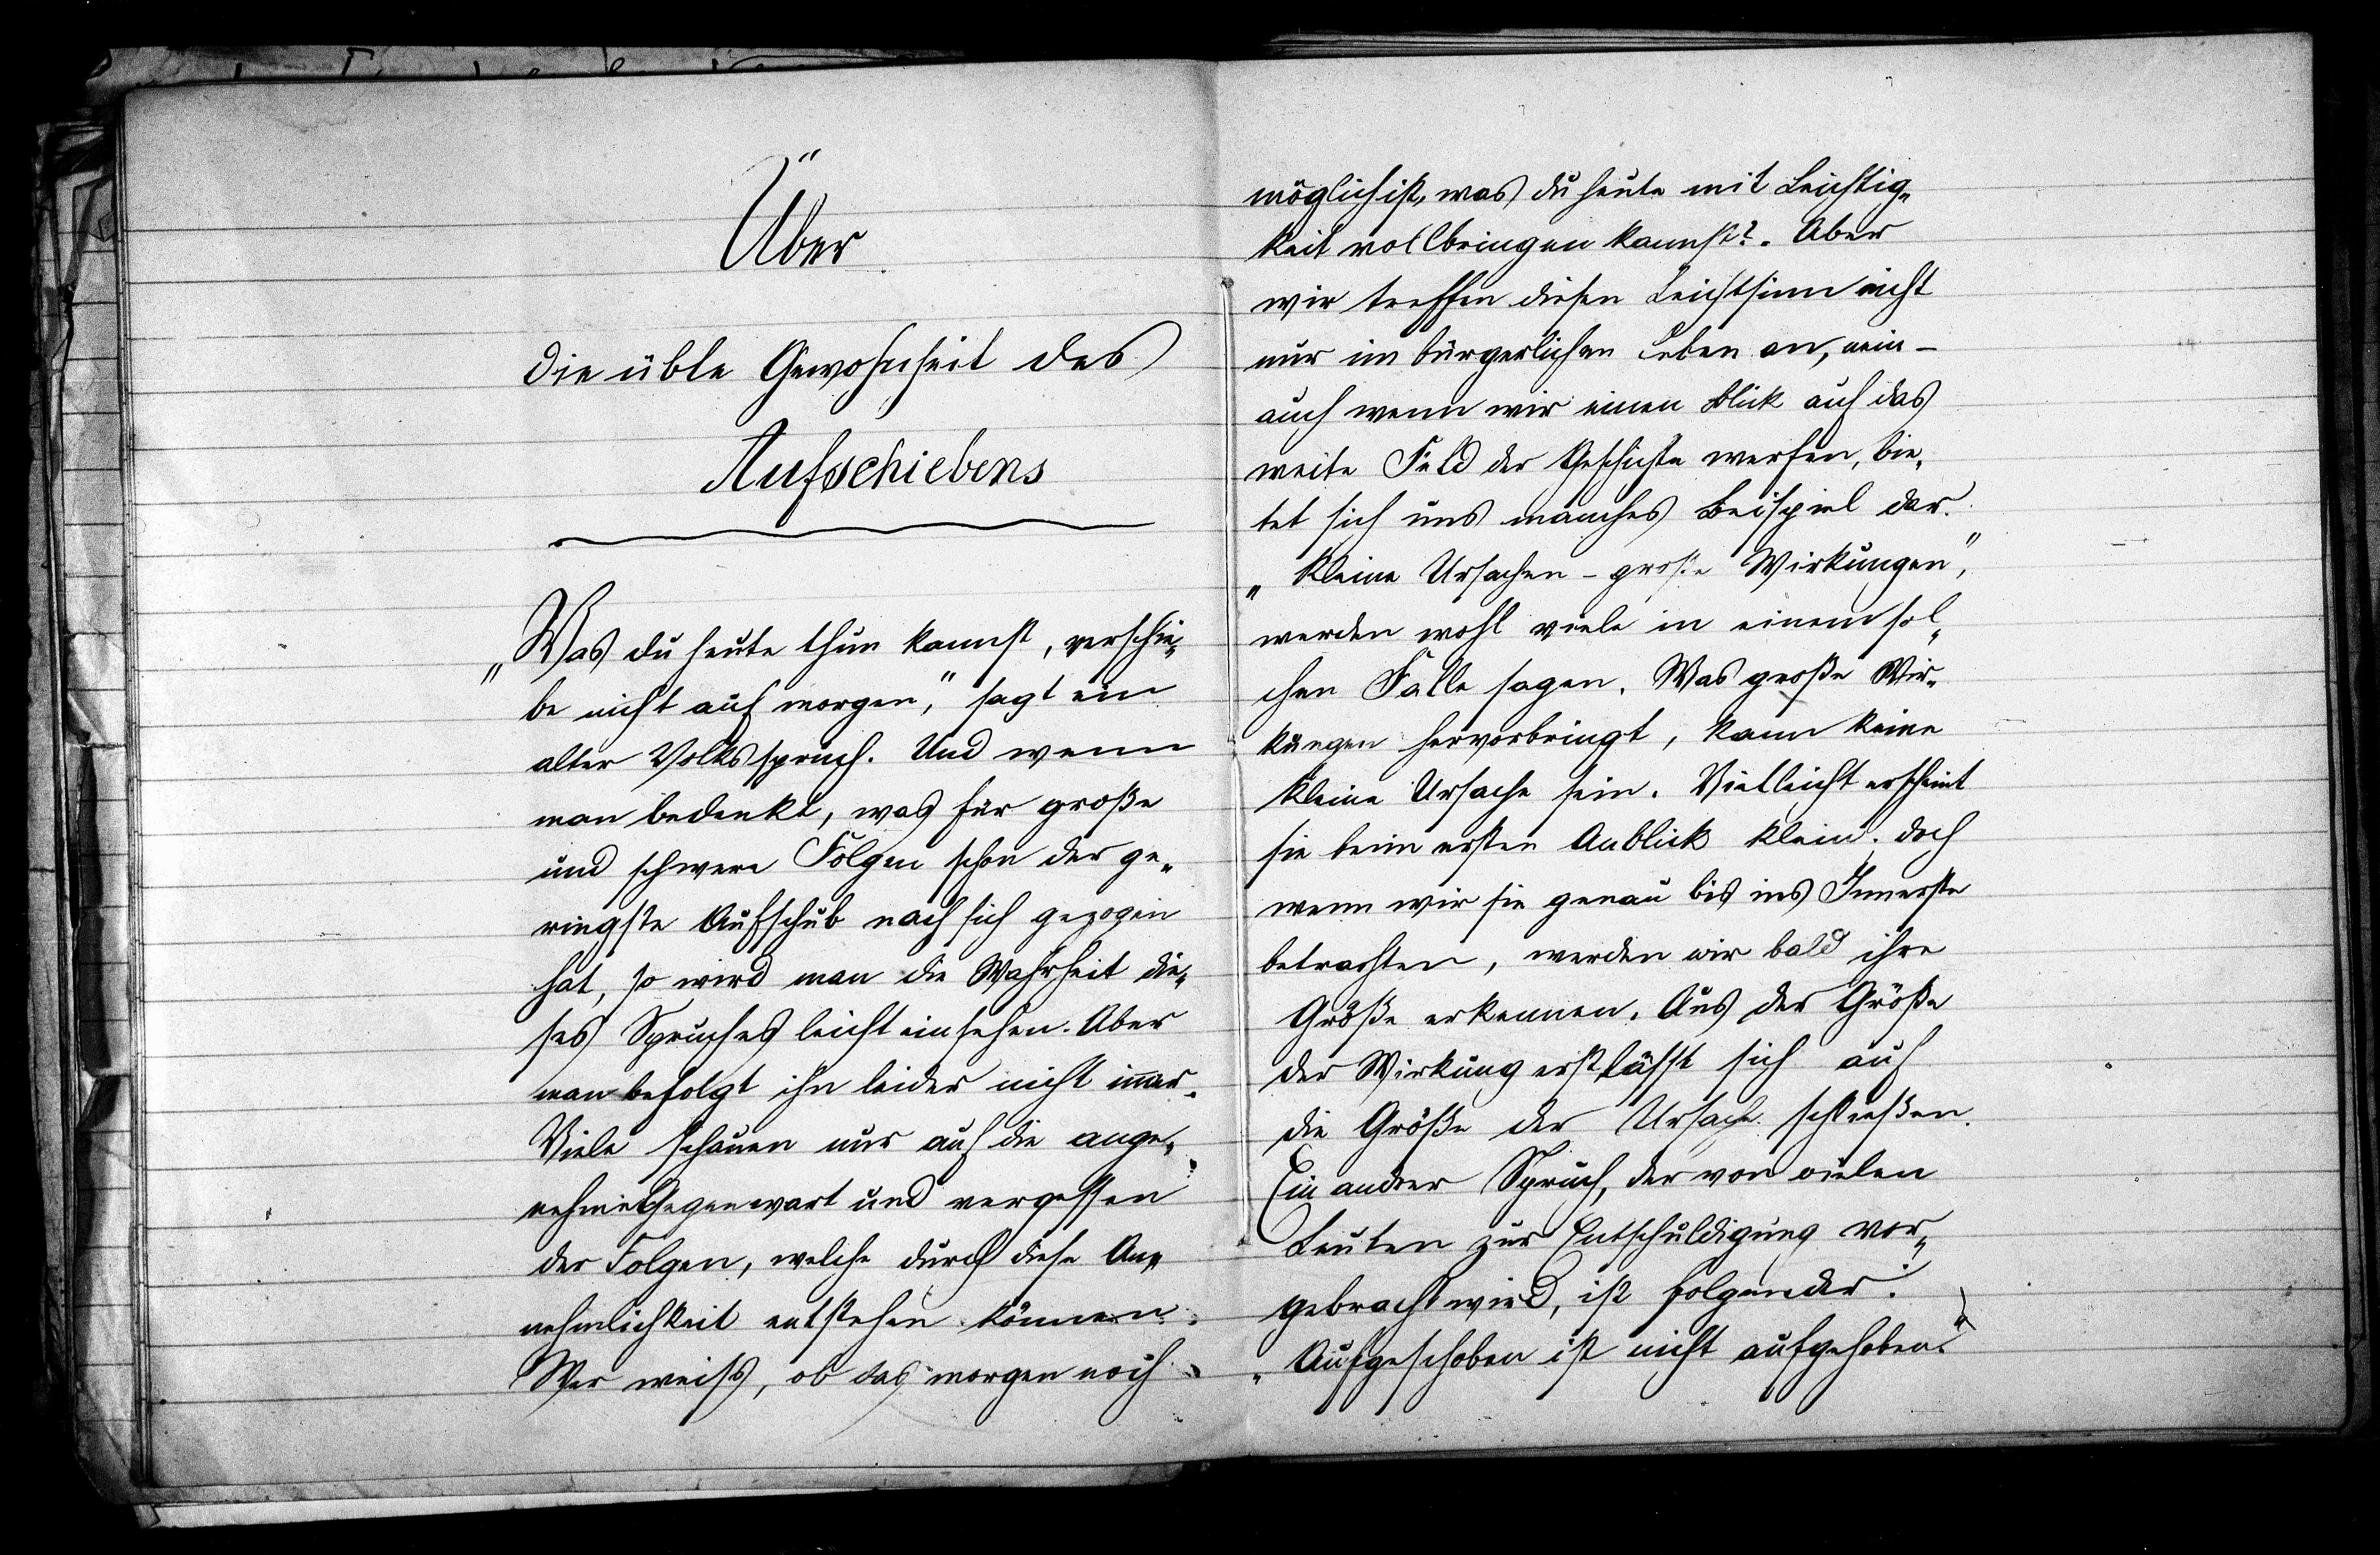 Über
die üble Gewohnheit des
Aufschiebens
„Was du heute thun kannst, verschie„
be nicht auf morgen,“ sagt ein
alter Volksspruch. Und wenn
man bedenkt, was für große
und schwere Folgen schon der ge„
ringste Aufschub nach sich gezogen
hat, so wird man die Wahrheit die„
ses Spruches leicht einsehen. Aber
man befolgt ihn leider nicht immer.
Viele schauen nur auf die ange„
nehme Gegenwart und vergessen
der Folgen, welche durch diese An„
nehmlichkeit entstehen können.
Wer weiß, ob das morgen noch
möglich ist, was du heute mit Leichtig„
keit vollbringen kannst?. Aber
wir treffen diesen Leichtsinn nicht
nur im bürgerlichen Leben an, nein –
auch wenn wir einen Blick auf das
weite Feld der Geschichte werfen, bie„
tet sich uns manches Beispiel dar.
„Kleine Ursachen – große Wirkungen“,
werden wohl viele in einem sol„
chen Falle sagen. Was große Wir„
kungen hervorbringt, kann keine
kleine Ursache sein. Vielleicht erscheint
sie beim ersten Anblick klein; doch
wenn wir sie genau bis ins Innerste
betrachten, werden wir bald ihre
Größe erkennen. Aus der Größe
der Wirkung erst lässt sich auf
die Größe der Ursache schließen.
Ein andrer Spruch, der von vielen
Leuten zur Entschuldigung vor„
gebracht wird, ist folgender:
„Aufgeschoben ist nicht aufgehoben.“